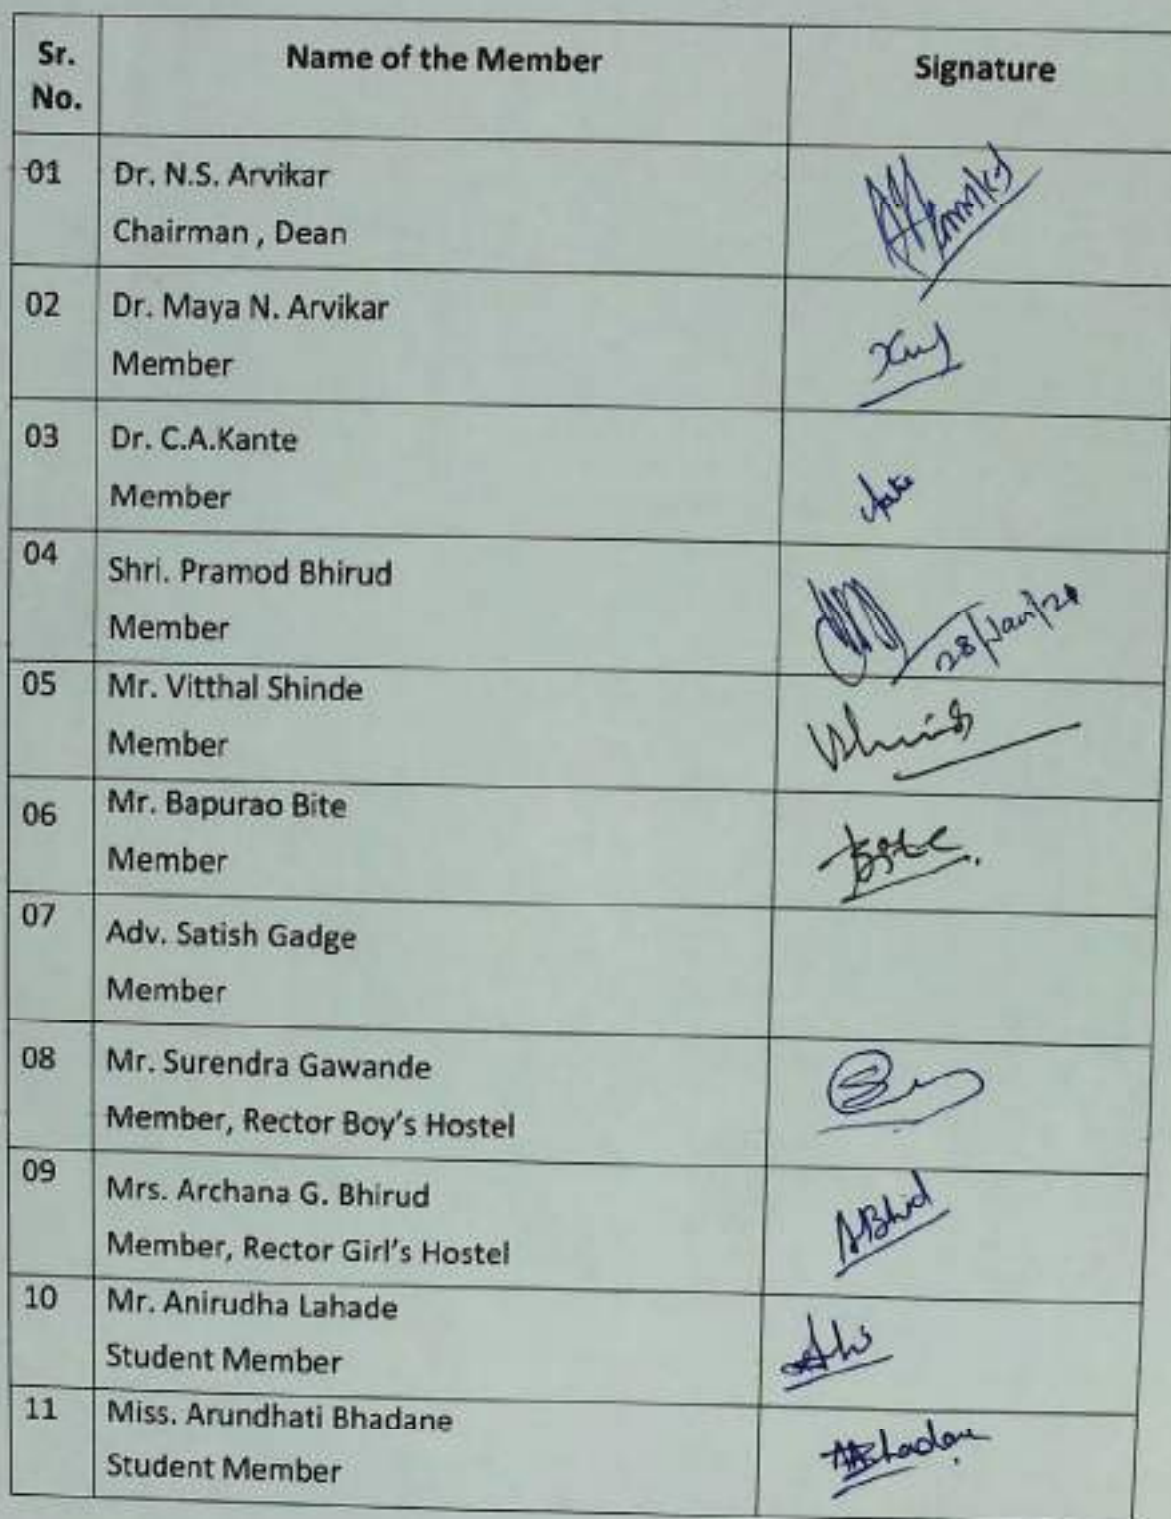 Sr. No.
Name of the Member
Signature
01
Dr. N.S. Arvikar
Chairman , Dean
02
Dr. Maya N. Arvikar
Member
03
Dr. C.A.Kante
Member
04
Shri. Pramod Bhirud
Member
28/Jan/21
05
Mr. Vitthal Shinde
Member
06
Mr. Bapurao Bite
Member
07
Adv. Satish Gadge
Member
08
Mr. Surendra Gawande
Member, Rector Boy's Hostel
09
Mrs. Archana G. Bhirud
Member, Rector Girl's Hostel
10
Mr. Anirudha Lahade
Student Member
11
Miss. Arundhati Bhadane
Student Member